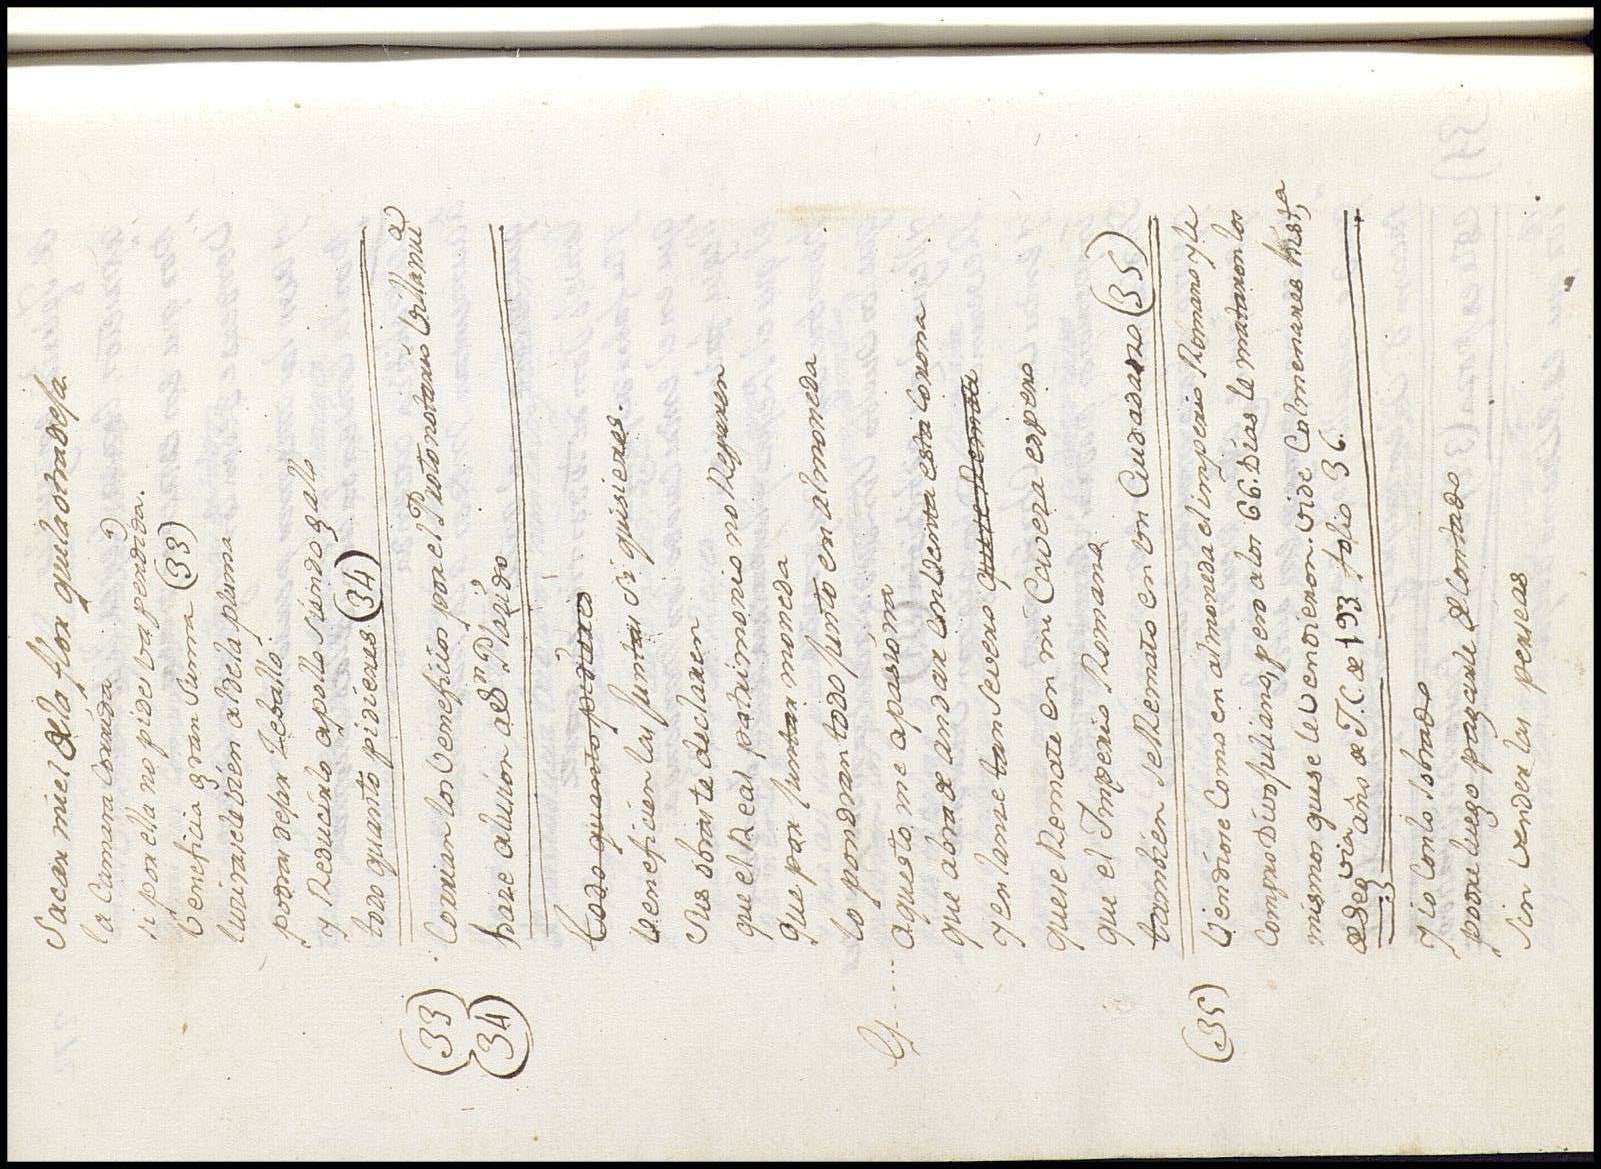 Sacar miel de la flor que la otra desa
la Camara Corrida
si por ella no pides va perdida.
Veneficia gran Suma (33)
luciraele bien al de la pluma
podra dejar de gallo
y Reducirlo a pollo siendo gallo
todo quanto pidieres (34)
(33) Corrian los Veneficios por el Protonotario Villanueva
(34) hace alusion a Dn Placido
Todo quanto pidieres
Veneficien las Juntas si quisieres.
Sus obras te declaren
que el Real patrimonio no Reparen
que par Juntar moneda
lo pondran todo Junto en almoneda
aquesto, me apasiona
que abra de andar en Venta esta Corona
y en lance tan Severo que se Remata
que se Remate en mi Caveza espero
que el Imperio Romano
tambien se Remato en un Ciudadano (35)
(35) Vendiose Como en almoneda el imperio Romano y le
Compro Divo Juliano, pero a los 66. Dias le mataron los
mismos que se le Vendieron. Vide Calmenares hista
de Segovia año de J.C. de 193. folio 36.
y lo Con lo Sobrado
podre luego pagarte de Contado
Sin Vender las preseas